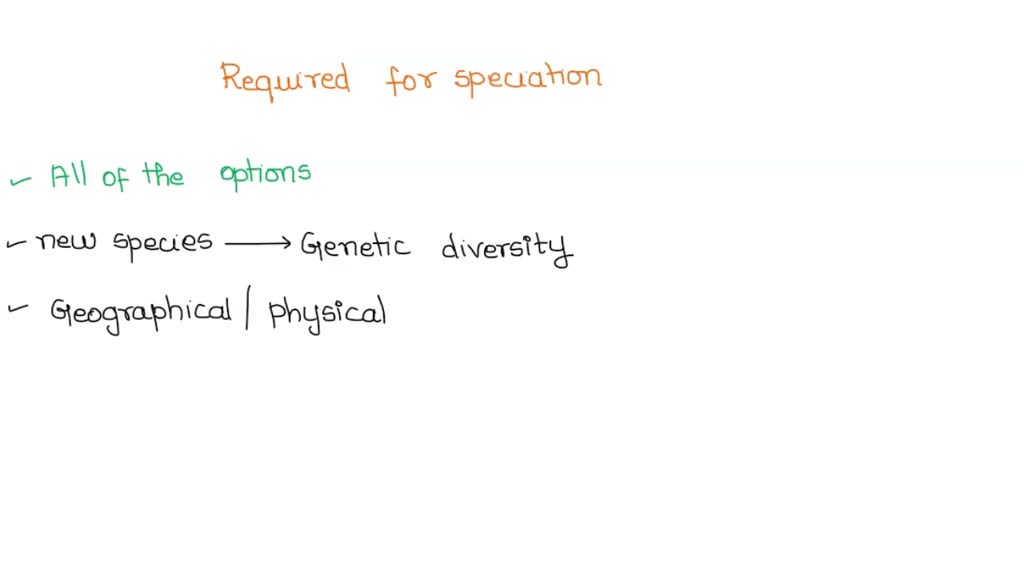 Required for speciation
All of the options
new species → Genetic diversity
Geographical / physical